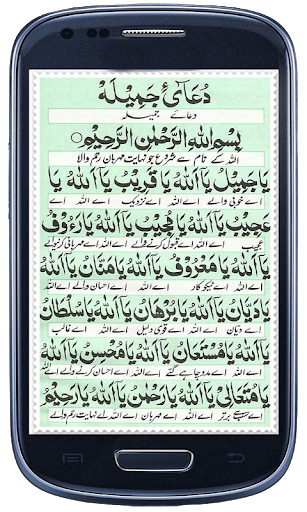 دُعَائے جَمِیْلَہ
دعائے جمیلہ
بِسْمِ اللّٰهِ الرَّحْمٰنِ الرَّحِیْمِ
اللہ کے نام سے شروع جو نہایت مہربان رحم والا
یَا جَمِیْلُ یَا اَللّٰهُ یَا قَرِیْبُ یَا اَللّٰهُ یَا
اے خوبی والے اے اللہ اے نزدیک اے اللہ اے
عَجِیْبُ یَا اَللّٰهُ یَا مُجِیْبُ یَا اَللّٰهُ یَا رَءُوْفُ
عجیب اے اللہ اے قبول کرنے والے اے اللہ اے مہربانی کرنیوالے
یَا اَللّٰهُ یَا مَعْرُوْفُ یَا اَللّٰهُ یَا مَنَّانُ یَا اَللّٰهُ
اے اللہ اے نیکو کار اے اللہ اے احسان والے اے اللہ
یَا دَیَّانُ یَا اَللّٰهُ یَا بُرْهَانُ یَا اَللّٰهُ یَا سُلْطَانُ
اے دیان اے اللہ اے قوی دلیل اے اللہ اے غالب
یَا اَللّٰهُ یَا مُسْتَعَانُ یَا اَللّٰهُ یَا مُحْسِنُ یَا اَللّٰهُ
اے اللہ اے مدد چاہے گئے اے اللہ اے احسان کرنے والے اے اللہ
یَا مُتَعَالِیْ یَا اَللّٰهُ یَا رَحْمٰنُ یَا اَللّٰهُ یَا رَحِیْمُ
اے سب سے برتر اے اللہ اے مہربان اے اللہ اے نہایت رحم والے